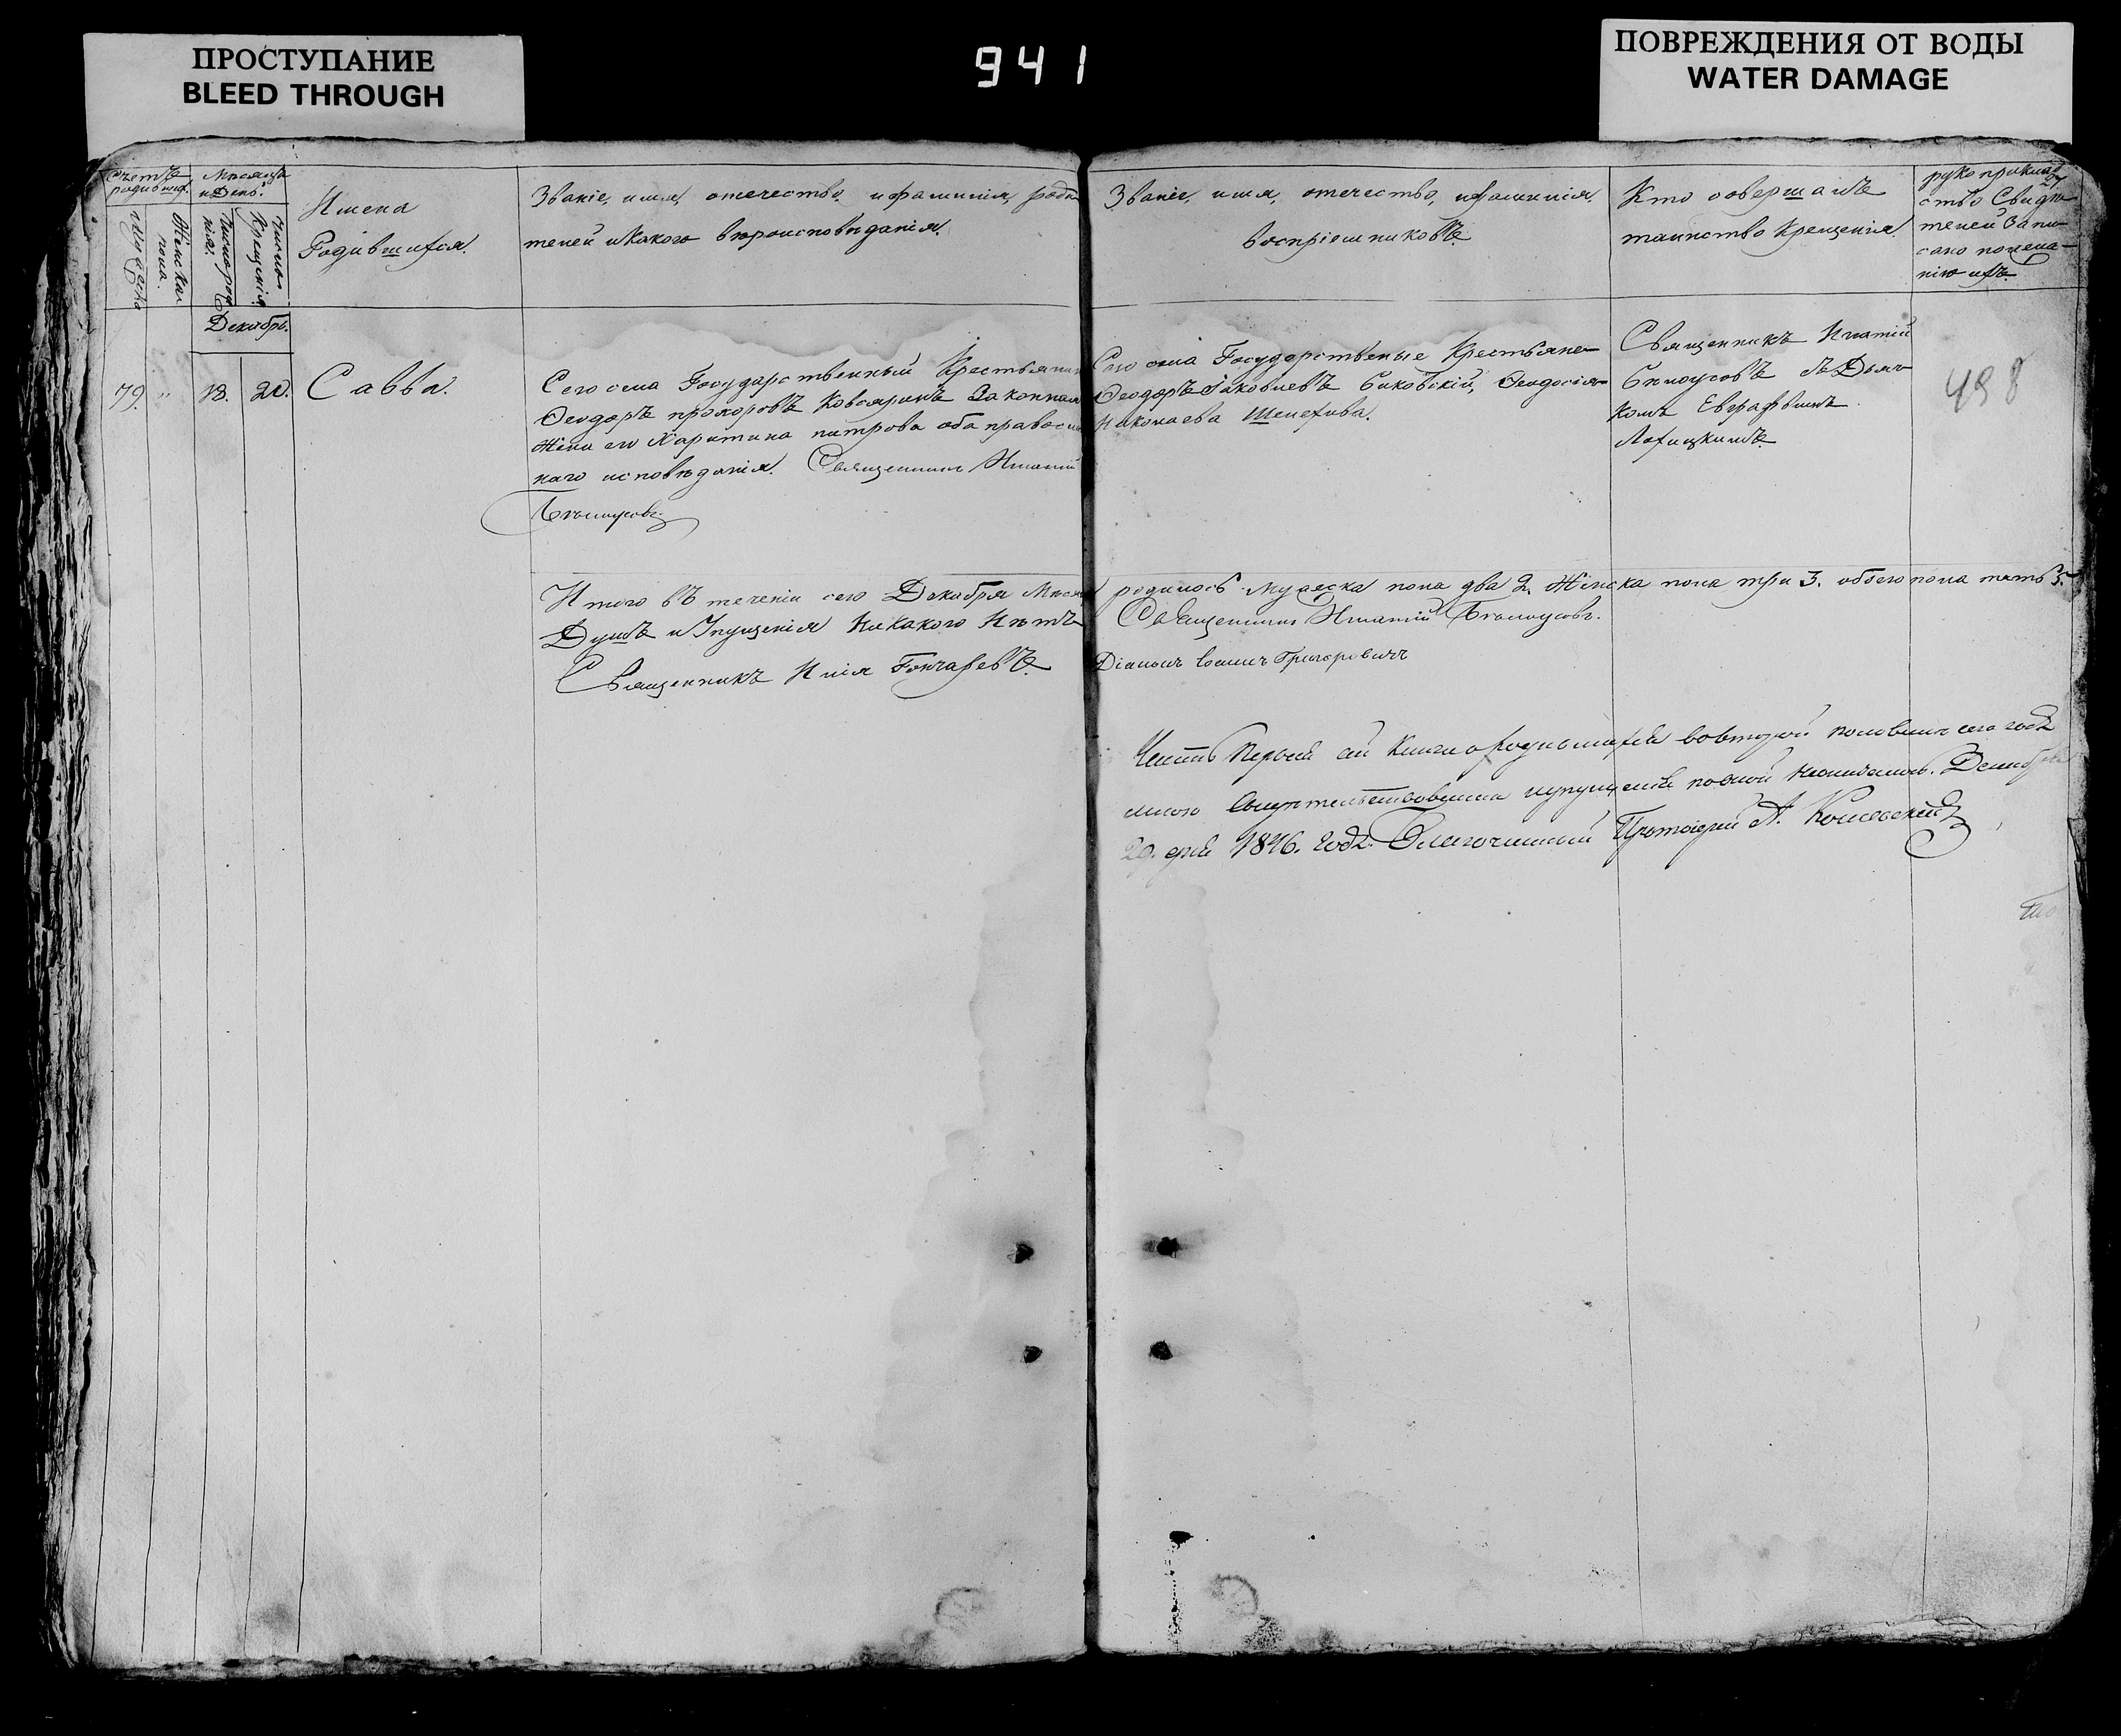 ПРОСТУПАНИЕ
BLEED THROUGH
941
ПОВРЕЖДЕНИЯ ОТ ВОДЫ
WATER DAMAGE
Счетъ
родивших.
Мужеска
Женска
пола.
Месяцъ
и День.
Число рож
нія.
Число
Крещенія.
Имена
Родившихся.
Званіе, имя, отечество, и фамилія, роди
телей и какого вероисповеданія.
Званіе, имя, отечество, и фамилія,
воспріемниковъ
Кто совершалъ
таинство Крещенія.
руко приклад
ство Свиде
телей Запи
сано по жела
нію ихъ.
Декабрь.
79. " 18. 20. Савва.
Сего села Государственный Крестьянин
Ѳеодоръ прохоровъ Законная
Жена его Харитина петрова оба правосла
наго исповѣданія. Священникъ Игнатій
Бѣлоусовъ
Сего села Государственые Крестьяне
Ѳеодоръ Іаковлевъ Биковскій, Ѳеодосія
Николаева
Священникъ Игнатій
Билоусовъ съ Дьяч
комъ Евграфомъ
498
Итого въ теченіи сего Декабря Месяца родилось мужеска пола два 2. Женска пола три 3. обоего пола пять 5.
Душъ и Упущенія Никакого Нѣтъ
Священникъ Игнатій Бѣлоусовъ.
Священникъ Илія Гончаревъ.
Діаконъ Іоаннъ Григоровичъ
Часть Первая сей Книги о Родившихся во второй половине сего года
мною Свидетельствована и упущенія Декабря
29. дня 1846. года. Благочинный Протоіерей А.